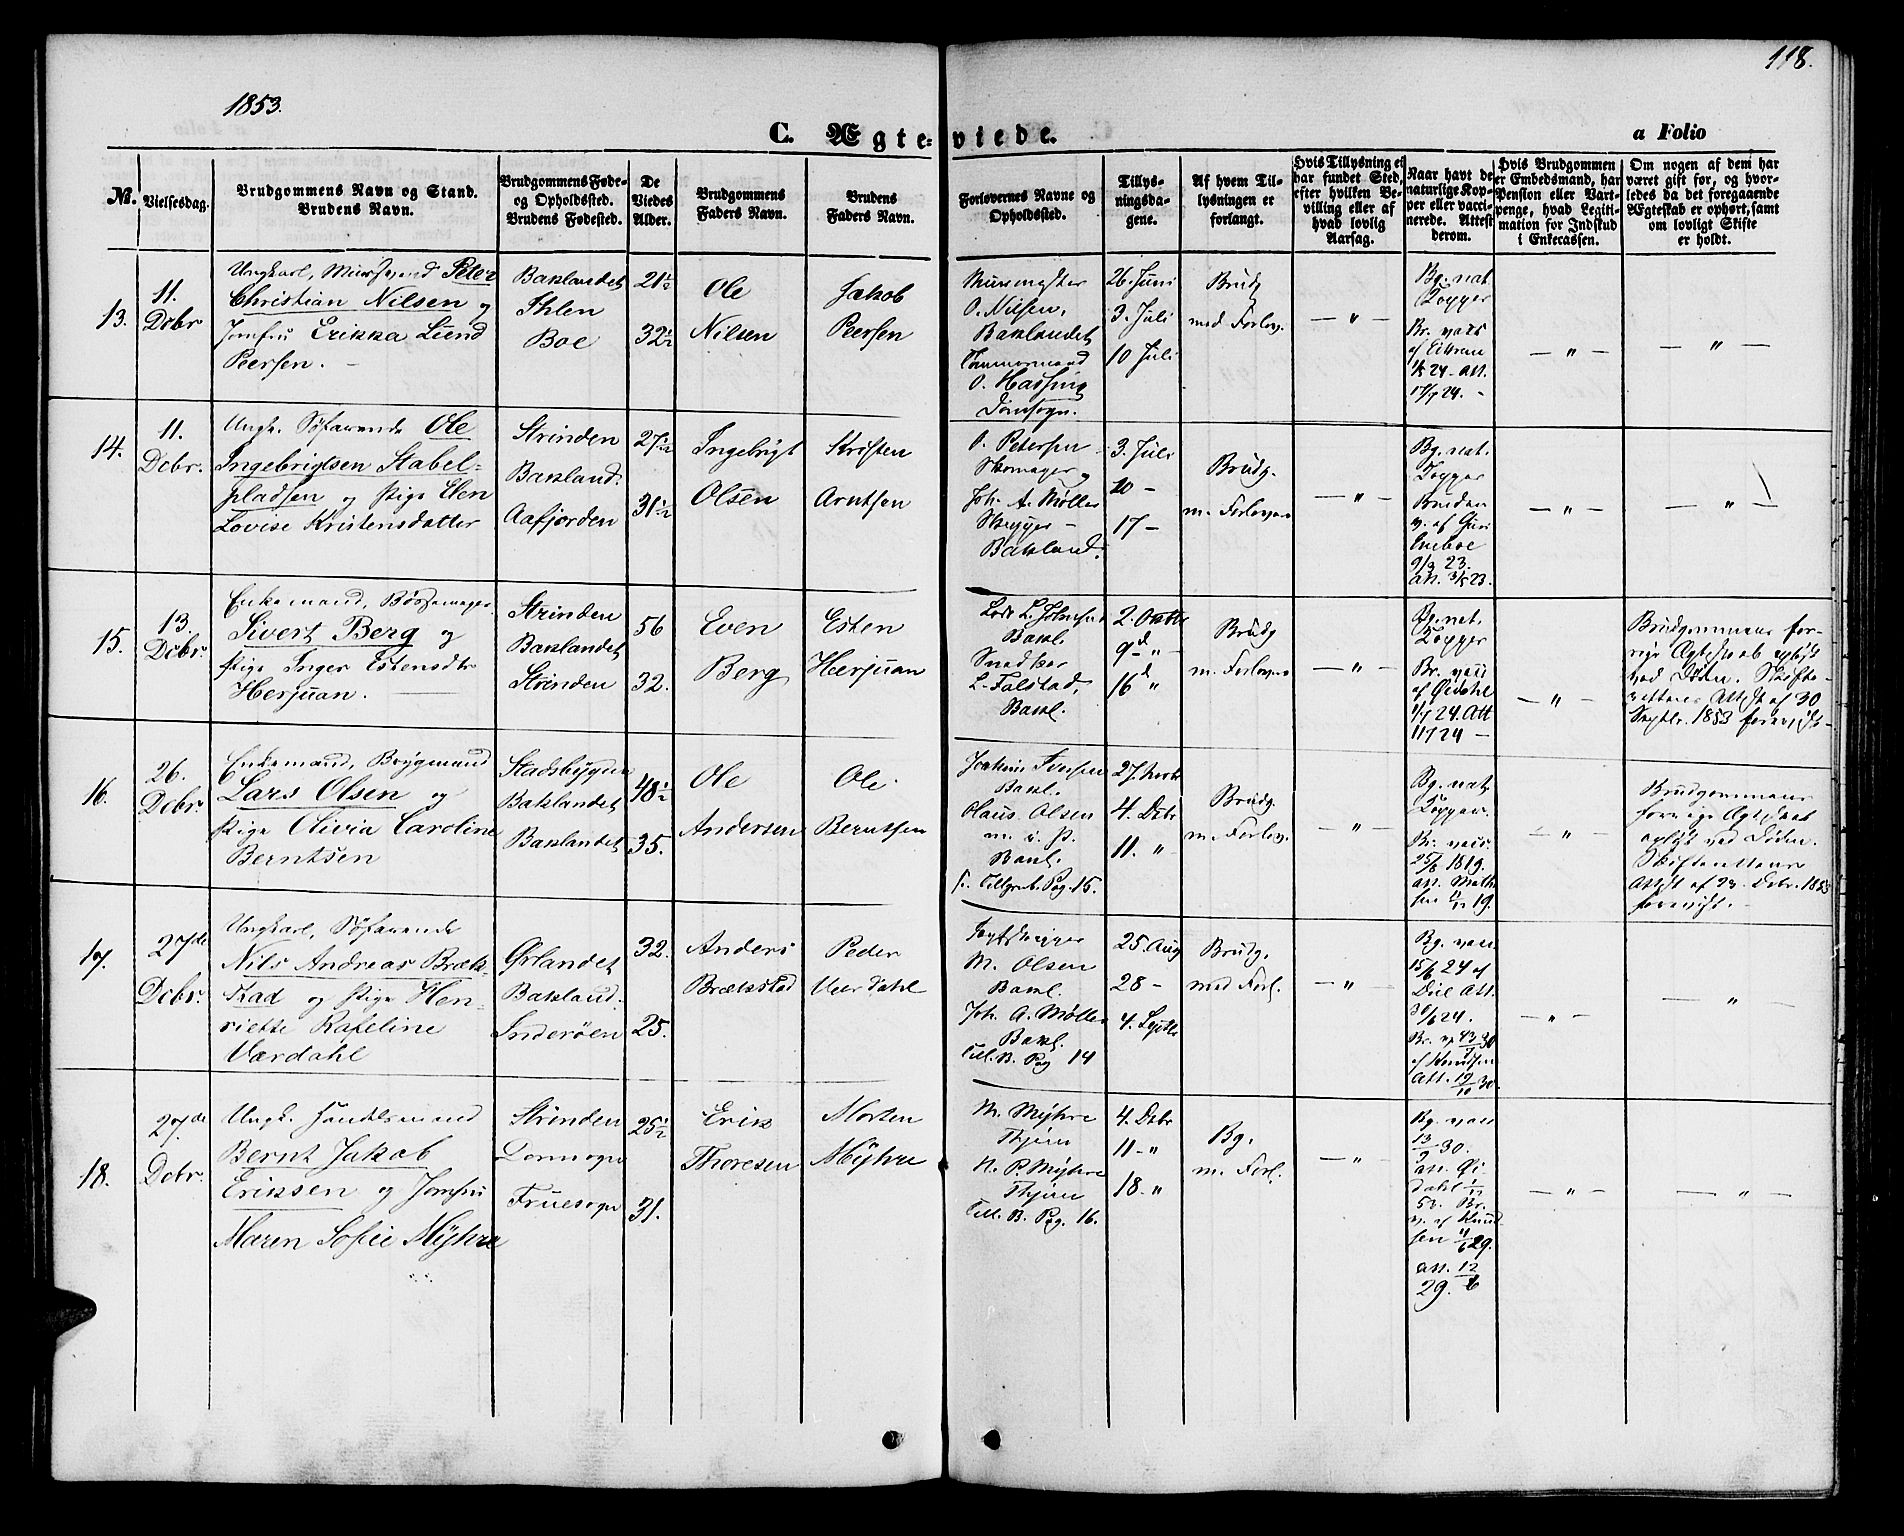 118.
1853.
C. Ægte-viede.
a Folio
No.
Vielsesdag.
Brudgommens Navn og Stand.
Brudens Navn.
Brudgommens Føde-
og Opholdssted.
Brudens Fødested.
De
Viedes
Alder.
Brudgommens
Faders Navn.
Brudens
Faders Navn.
Forlovernes Navne og
Opholdssted.
Tillys-
ningsda-
gene.
Af hvem Til-
lysningen er
forlangt.
Hvis Tillysning ei
har fundet Sted,
efter hvilken Be-
villing eller af
hvad lovlig
Aarsag.
Naar havt de
naturlige Kop-
per eller vacci-
nerede. Attest
derom.
Hvis Brudgommen
er Embedsmand, har
Pension eller Vart-
penge, hvad Legiti-
mation for Indskud
i Enkecassen.
Om nogen af dem har
været gift før, og hvor-
ledes da det foregaaende
Ægteskab er ophørt, samt
om lovligt Skifte
er holdt.
13.
11.
Dcbr
Ungkarl, Muursvend Peter
Christian Nilsen og
Jomfru Erikka Lund
Peersen. -
Baklandet
Ihlen
Boe
21½
32½
Ole
Nilsen
Jakob
Peersen
Muurmester
O. Nilsen,
Baklandet
Tømmermand
O. Hassing
Domsogn.
26. Juni
3. Juli
10 Juli
Brudg
med Forlov.
— " —
Bg. nat
Kopper
Br. vacc
af Eittrem
24 - Att.
17/7 24. -
— " —
— " —
14.
11.
Dcbr.
Ungk. Søfarende Ole
Ingebrigtsen Stabel-
pladsen og Pige Elen
Lovise Kristensdatter
Strinden
Bakland.
Aafjorden
27½
31½
Ingebrigt
Olsen
Kristen
Arntsen
O. Petersen
Skomager og
Joh. A. Møller
Skipper -
Bakland.
3. Juli
10 -
17 -
Brudg.
m. Forlovere
— " —
Bg. nat.
Kopper
Bruden
v. af Guri
Eneboe
9/9 23.
Att. 23.
— " —
— " —
15.
13.
Dcbr.
Enkemand, Bøssemager
Sivert Berg og
Pige Inger Estensdtr
Herjuan.
Strinden
Baklandet
Strinden
56
32.
Even
Berg
Esten
Herjuan
Lods L. Johnsen
Bakl.
Snedker
L. Falstad,
Bakl.
2. Octbr
9d "
16d "
Brudg
m. Forlovere
— " —
Bg. nat.
Kopper
Br. vacc
af Øidahl
1/7 24. Att
11/7 24 -
— " —
Brudgommens for-
rige Ægteskab ophørt
ved Døden. Skifte-
rettens Attest af 30
Septbr. 1853 forevist -
16.
26.
Dcbr.
Enkemand, Brygmand
Lars Olsen og
Pige Olivia Caroline
Berntsen
Stadsbygden
Baklandet
Baklandet
48½
35.
Ole
Andersen
Ole
Berntsen
Joakim Iversen
Bakl.
Olaus Olsen
Bakl.
Pag. 15.
27. Novbr
4. Dcbr
11. "
Brudg.
m. Forlov.
— " —
Bg. nat,
Kopper.
Br. vacc.
25/6 1819.
Att. Math
sen 19.
— " —
Brudgommens
forrige Ægteskab
opløst ved Døden.
Skifterettens
Attest af 23. Dcbr. 1853
forevist. -
17.
27de
Dcbr.
Ungkarl, Søfarende
Nils Andreas Bræk-
stad og Pige Hen-
riette Rafeline
Værdahl
Ørlandet
Bakland.
Inderøen
32.
25.
Anders
Brækstad
Peder
Værdahl
M. Olsen
Bakl.
Joh. A. Møller
Bakl.
Till. B. Pag 14
25. Aug
28 -
4. Septbr
Brudg.
med Forl.
— " —
Bg. vacc.
15/6 24 af
Due Att.
30/6 24.
30
af Knudsen
Att. 19/10 30.
— " —
— " —
18.
27de
Dcbr.
Ungk. Handelsmand
Bernt Jakob
Eriksen og Jomfru
Maren Sofie Myhre
Strinden
Domsogn
Fruesogn
25½
31.
Erik
Thoresen
Morten
Myhre
M. Myhre
Thjem
N. P. Myhre
Thjem
Till. B. Pag. 16.
4. Dcbr
11 - "
18. "
Bg.
m. Forl.
— " —
Bg. vacc
13/9 30.
Att. Øi
dahl
53. Br.
v. af Knud
sen 11/6 29.
Att. 12/6
29.
— " —
— " —